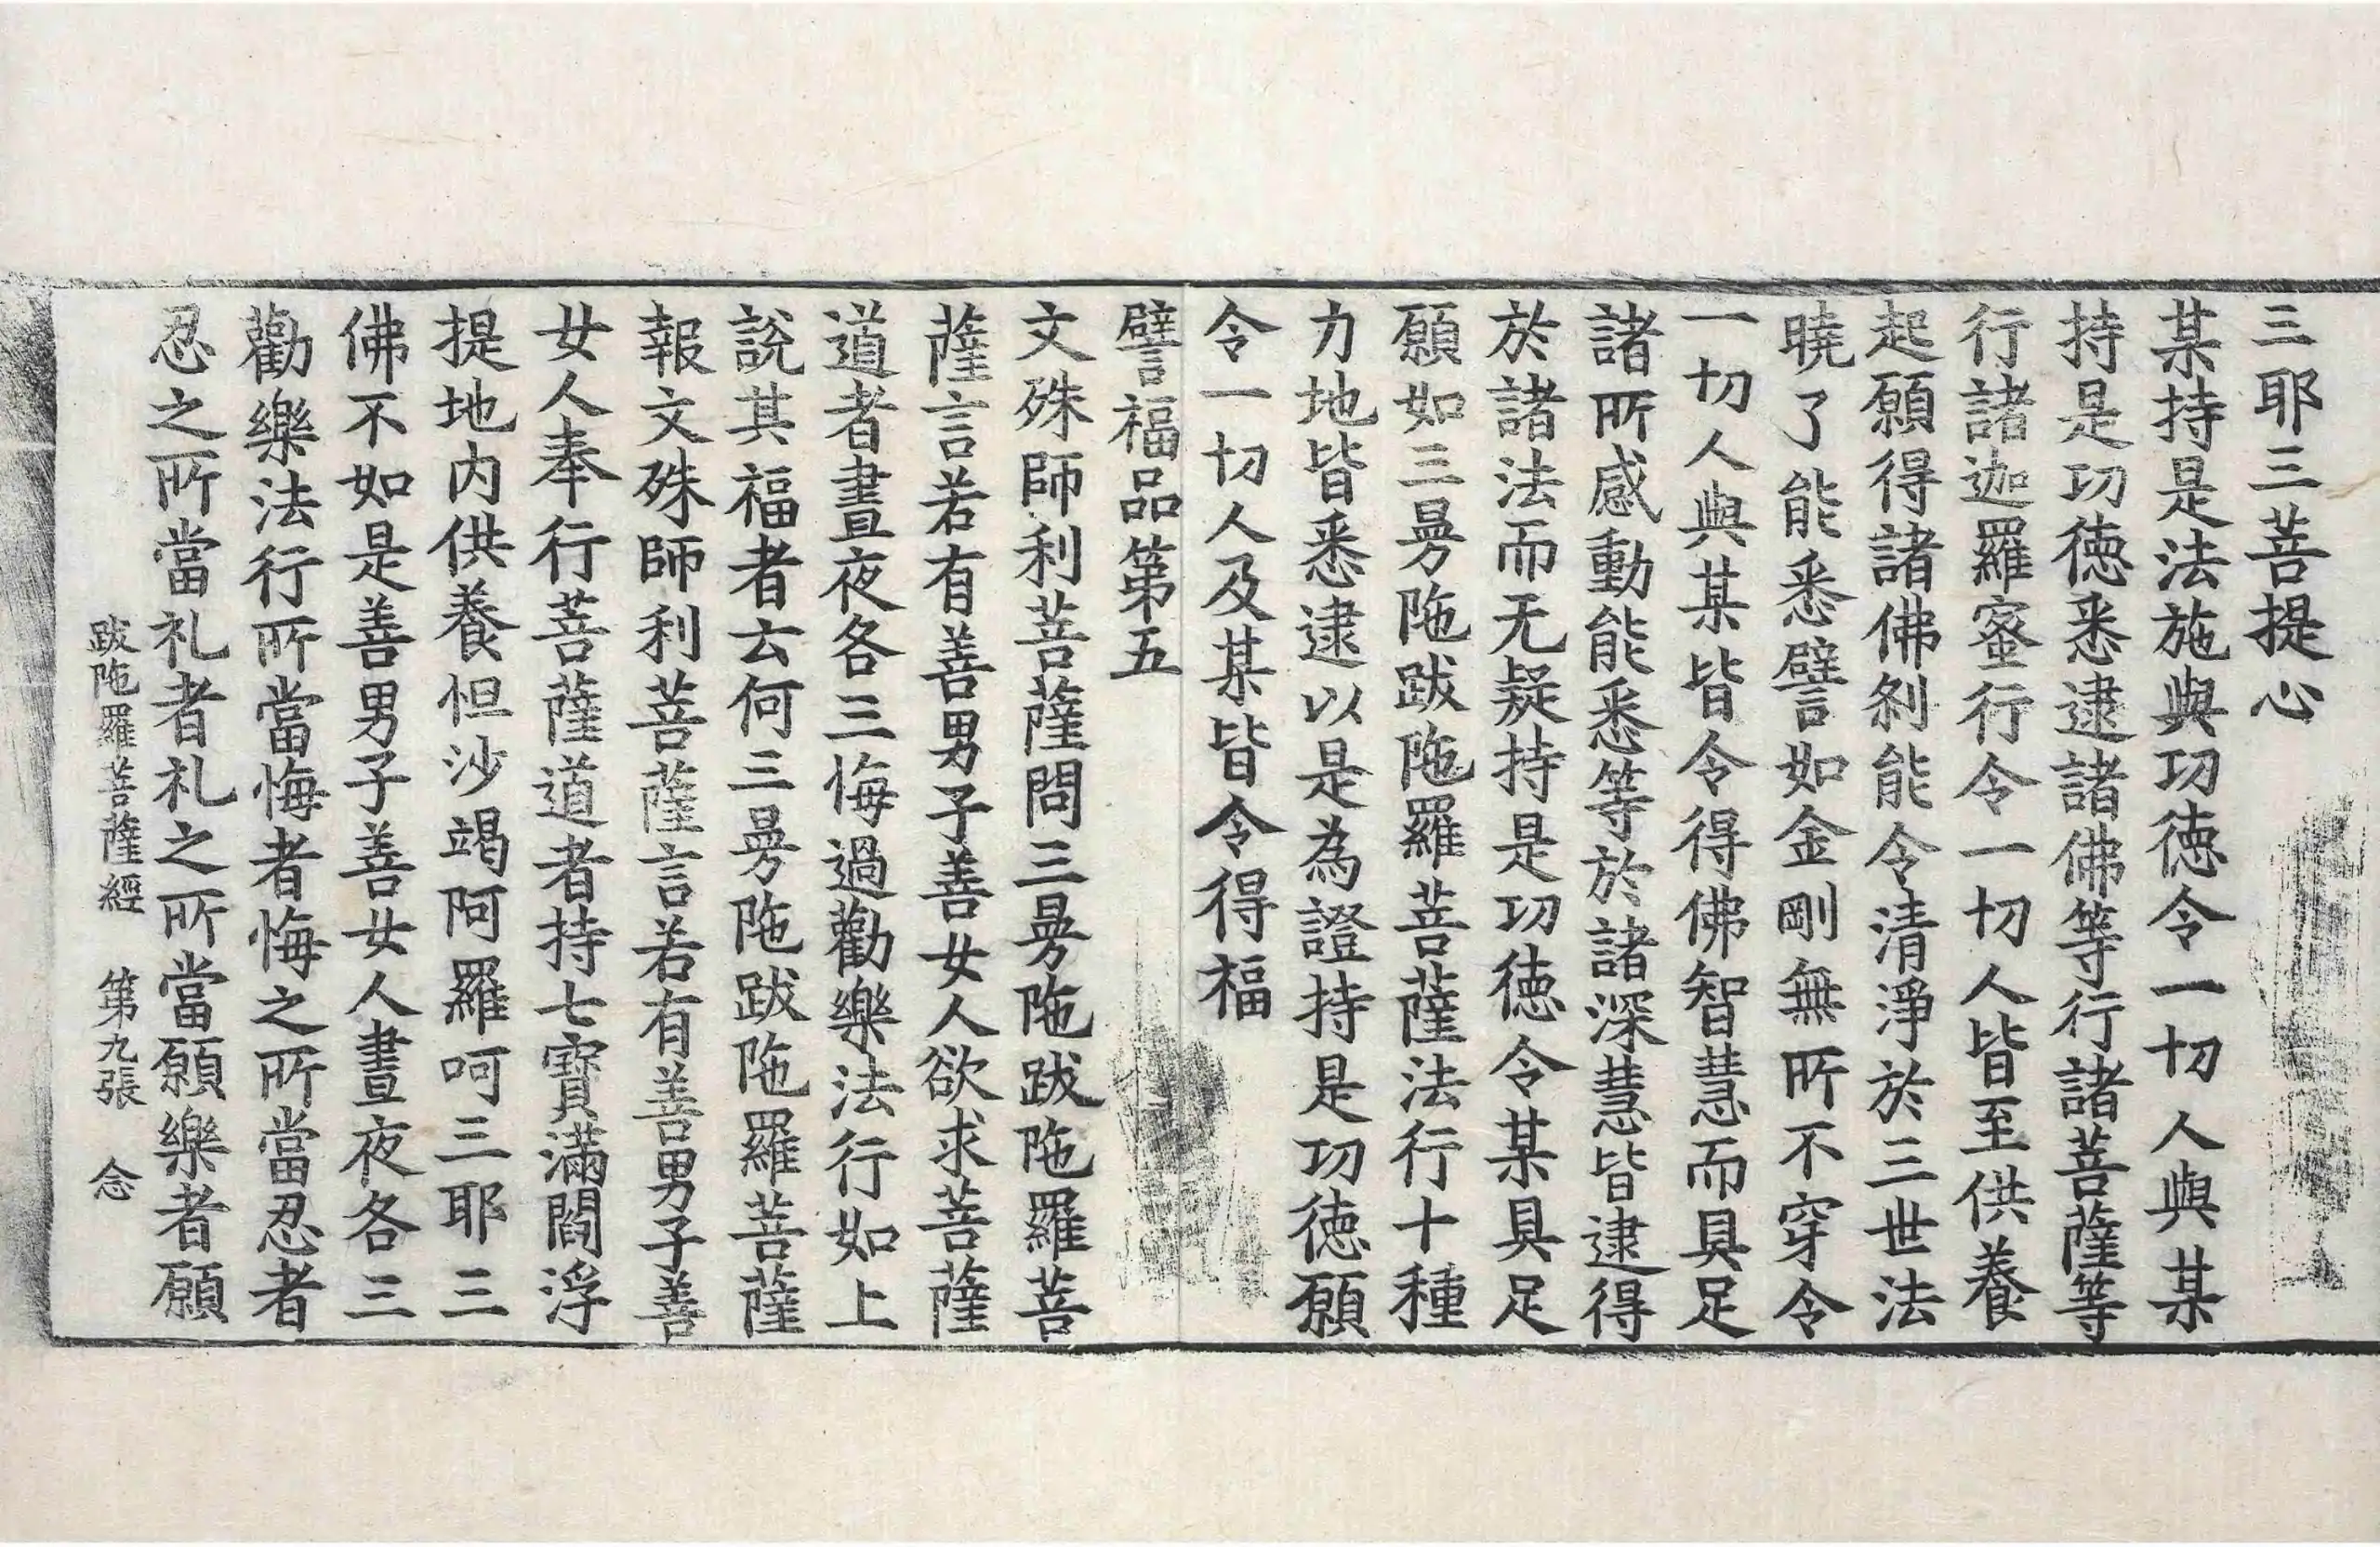 三耶三菩提心
某持是法施與功徳令一切人與某
持是功徳悉逮諸佛等行諸菩薩等
行諸迦羅蜜行令一切人皆至供養
起願得諸佛剎能令清淨於三世法
曉了能悉譬如金剛無所不穿令
一切人與某皆令得佛智慧而具足
諸所感動能悉等於諸深慧皆逮得
於諸法而无疑持是功徳令某具足
願如三曼陁跋陁羅菩薩法行十種
力地皆悉逮以是為證持是功徳願
令一切人及某皆令得福
譬福品第五
文殊師利菩薩問三曼陁跋陁羅菩
薩言若有善男子善女人欲求菩薩
道者晝夜各三悔過勸樂法行如上
說其福者云何三曼陁跋陁羅菩薩
報文殊師利菩薩言若有善男子善
女人奉行菩薩道者持七寶滿閻浮
提地内供養怛沙竭阿羅呵三耶三
佛不如是善男子善女人晝夜各三
勸樂法行所當悔者悔之所當忍者
忍之所當礼者礼之所當願樂者願
跋陁羅菩薩經 第九張 念